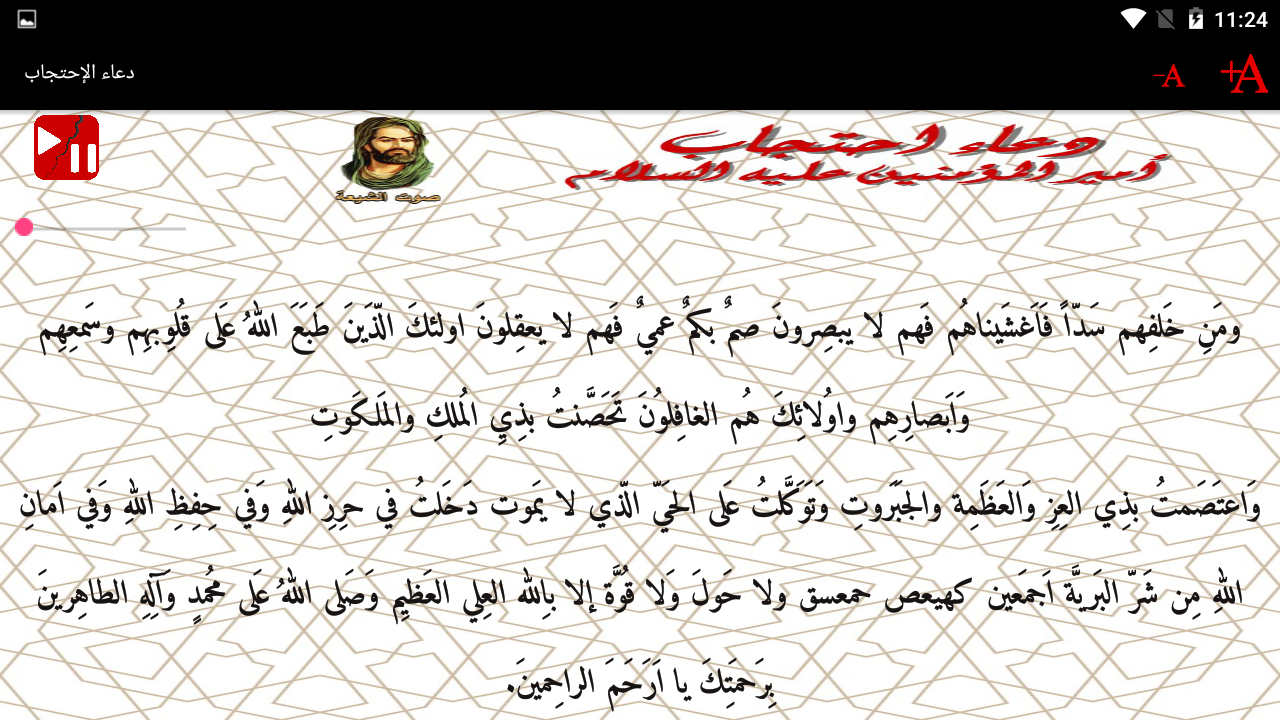 11:24
دعاء الإحتجاب
-A
+A
دعاء احتجاب
أمير المؤمنين عليه السلام
صوت الشيعة
ومَنِ خَلفِهم سَدّاً فَاَغشَيناهُم فَهم لا يبصِرونَ صمٌ بكمٌ عمِيٌ فَهم لا يعقِلونَ اولئكَ الّذَينَ طَبَعَ اللهُ عَلَى قلُوِبهِم وسَمعِهِم
وَاَبَصارِهِم واوُلائِكَ هُم الغافِلوُنَ تَحَصَّنتُ بذِيِ المُلكِ والمَلكَوتِ
وَاعتَصَمتُ بذِي العِزِ وَالعَظَمِة والجبَرَوتِ وَتَوَكَّلتُ عَلى الحَيّ الّذي لا يمَوت دَخَلتُ في حِرِزِ اللهِ وَفي حِفِظِ اللهِ وَفي اَمانِ
اللهِ مِن شَرّ البَرَيةَّ اَجَمعَين كهيعص حمعسق ولا حَولَ وَلا قُوَّة إلا بِالله العلِي العَظيِمِ وَصَلى اللهُ عَلَى محُمدٍ وَآلِهِ الطاهِرينَ
بِرَحمَتِكَ يا اَرَحَمَ الراحِمينَ.